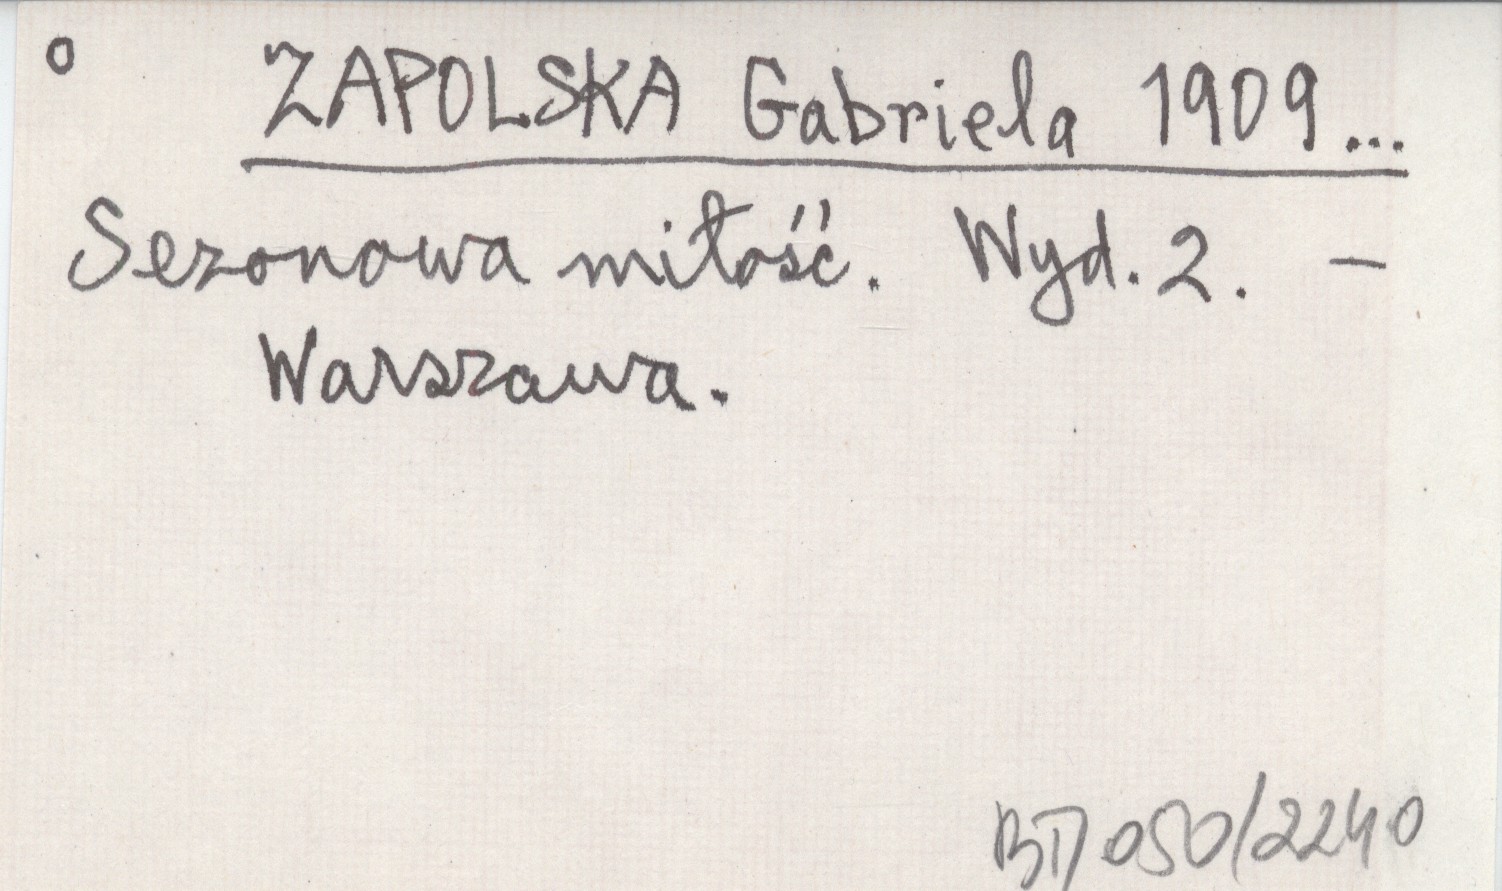 o ZAPOLSKA Gabriela 1909...
Sezonowa miłość. Wyd. 2. —
Warszawa.
BTD 050/2240